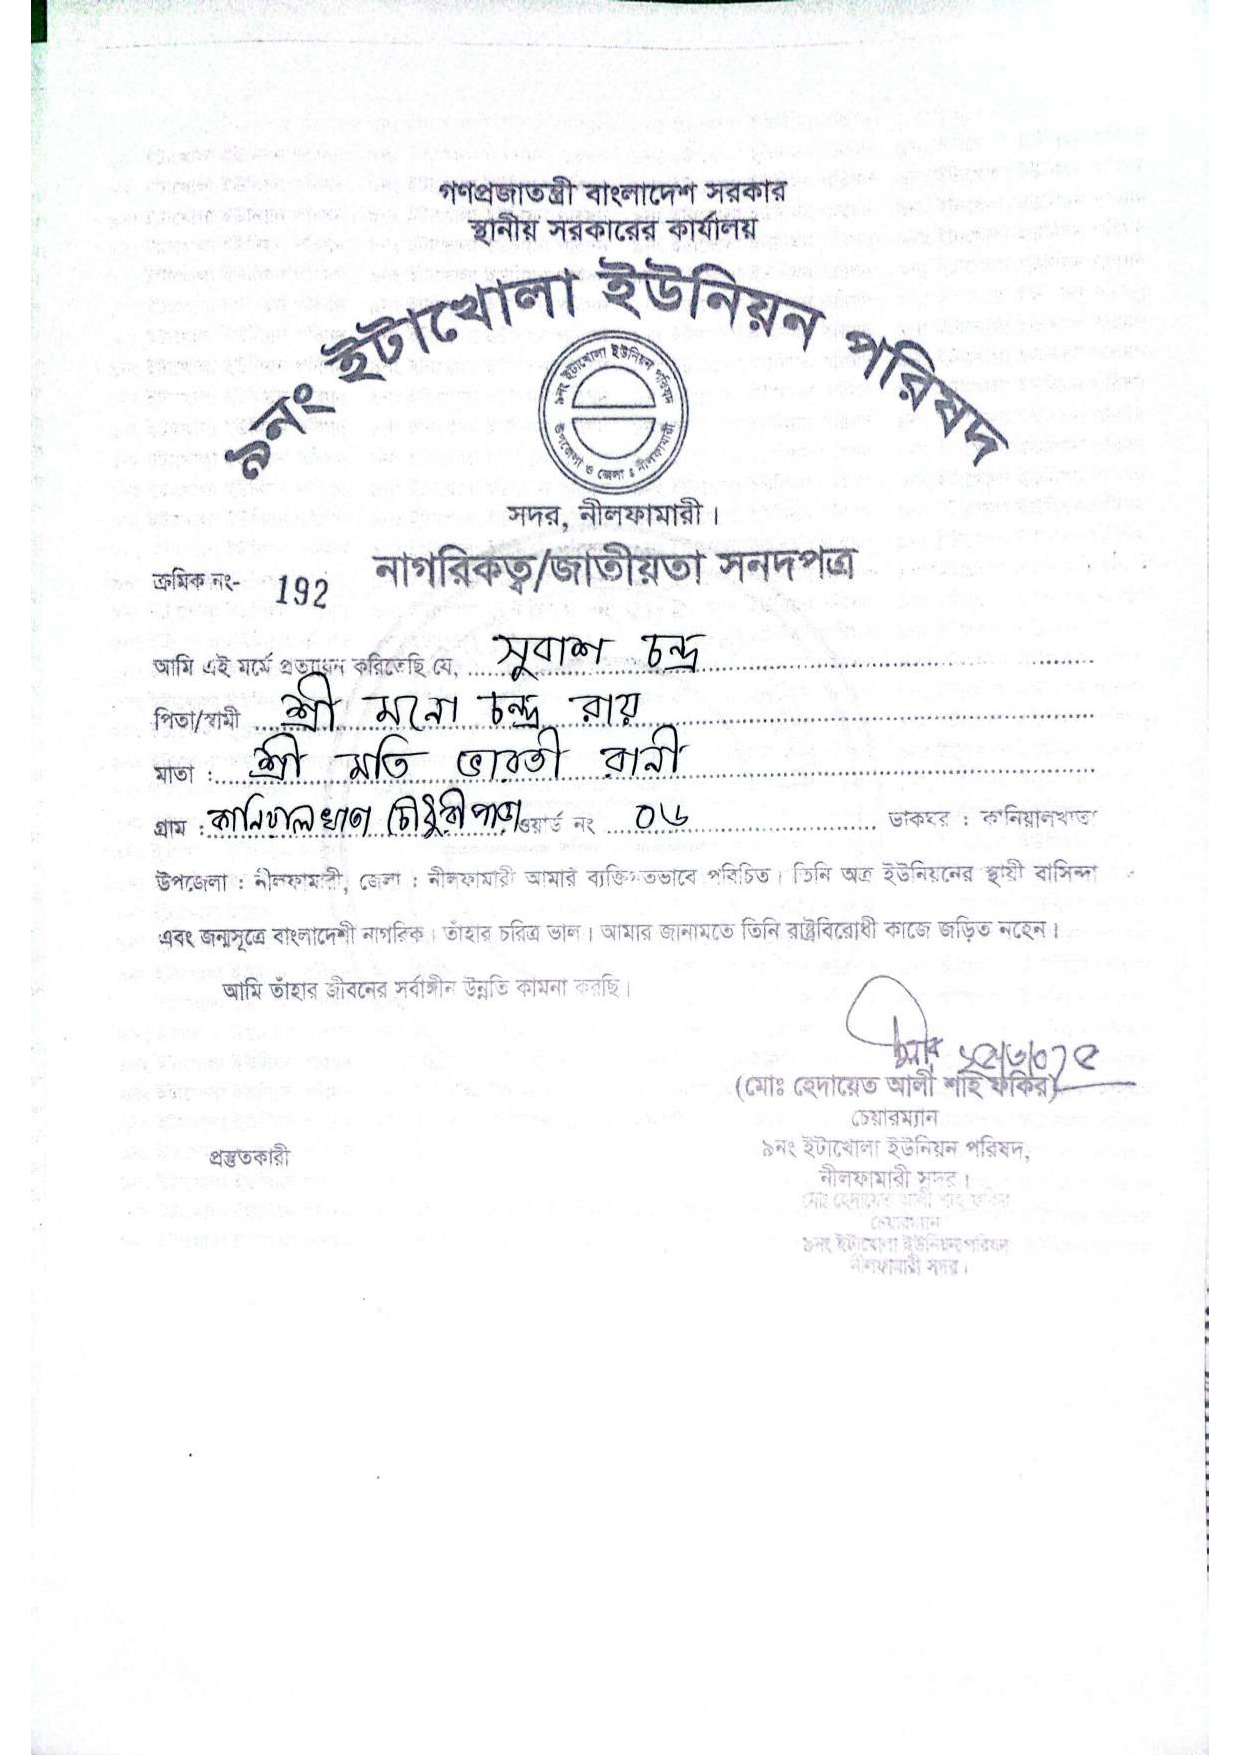 গণপ্রজাতন্ত্রী বাংলাদেশ সরকার
স্থানীয় সরকারের কার্যালয়
৯নং ইটাখোলা ইউনিয়ন পরিষদ
৯নং ইটাখোলা ইউনিয়ন পরিষদ
উপজেলা ও জেলা : নীলফামারী
সদর, নীলফামারী।
নাগরিকত্ব/জাতীয়তা সনদপত্র
ক্রমিক নং- 192
আমি এই মর্মে প্রত্যয়ন করিতেছি যে, সুবাশ চন্দ্র
পিতা/স্বামী শ্রী মনো চন্দ্র রায়
মাতা : শ্রী মতি ভারতী রানী
গ্রাম : কানিয়ালখাতা চৌধুরীপাড়া ওয়ার্ড নং ০৬ ডাকঘর : কানিয়ালখাতা
উপজেলা : নীলফামারী, জেলা : নীলফামারী আমার ব্যক্তিগতভাবে পরিচিত। তিনি অত্র ইউনিয়নের স্থায়ী বাসিন্দা
এবং জন্মসূত্রে বাংলাদেশী নাগরিক। তাঁহার চরিত্র ভাল। আমার জানামতে তিনি রাষ্ট্রবিরোধী কাজে জড়িত নহেন।
আমি তাঁহার জীবনের সর্বাঙ্গীন উন্নতি কামনা করছি।
(মোঃ হেদায়েত আলী শাহ ফকির)
চেয়ারম্যান
৯নং ইটাখোলা ইউনিয়ন পরিষদ,
প্রস্তুতকারী
নীলফামারী সদর।
মোঃ হেদায়েত আলী শাহ ফকির
চেয়ারম্যান
৯নং ইটাখোলা ইউনিয়ন পরিষদ
নীলফামারী সদর।